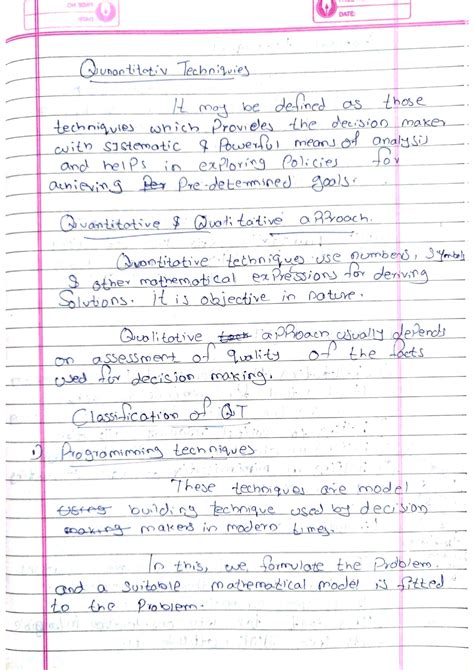 DATE:
Qunantitativ Techniques
It may be defined as those
techniques which Provides the decision maker
with systematic & Powerful means of analysis
and helps in exploring Policies for
achieving Per Pre-determined goals.
Quantitative & Qualitative approach.
Quantitative techniques use numbers, symbols
& other mathematical expressions for deriving
Solutions. It is objective in nature.
Qualitative approach usually depends
on assessment of quality of the facts
used for decision making.
Classification of QT
1) Programimning techniques
These techniques are model
using building technique used by decision
making makers in modern times.
In this, we formulate the Problem
and a suitable mathematical model is fitted
to the Problem.